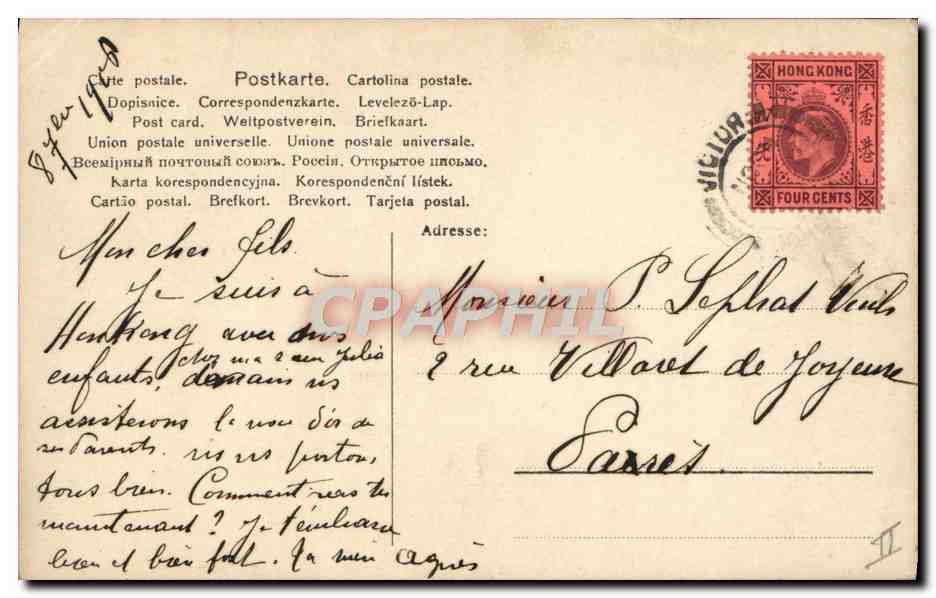 8 7bre 1908
Carte postale. Postkarte. Cartolina postale.
Dopisnice. Correspondenzkarte. Levelező-Lap.
Post card. Weltpostverein. Briefkaart.
Union postale universelle. Unione postale universale.
Всемірный почтовый союзъ. Россія. Открытое письмо.
Karta korespondencyjna. Korespondenční lístek.
Cartão postal. Brefkort. Brevkort. Tarjeta postal.
HONG KONG
香港
FOUR CENTS
VICTORIA
Adresse:
Mon cher fils.
Je suis à
Honkong avec nos
chez ma sœur Julia
enfants, demain ns
assisterons le noce d'or de
ses Parents. ns ns portons
tous bien. Comment vas tu
maintenant? Je t'embrasse
bien et bien fort. Ta mère Agnès
Monsieur P.
2 rue Villaret de Joyeuse
Paris
CPAPHIL
II